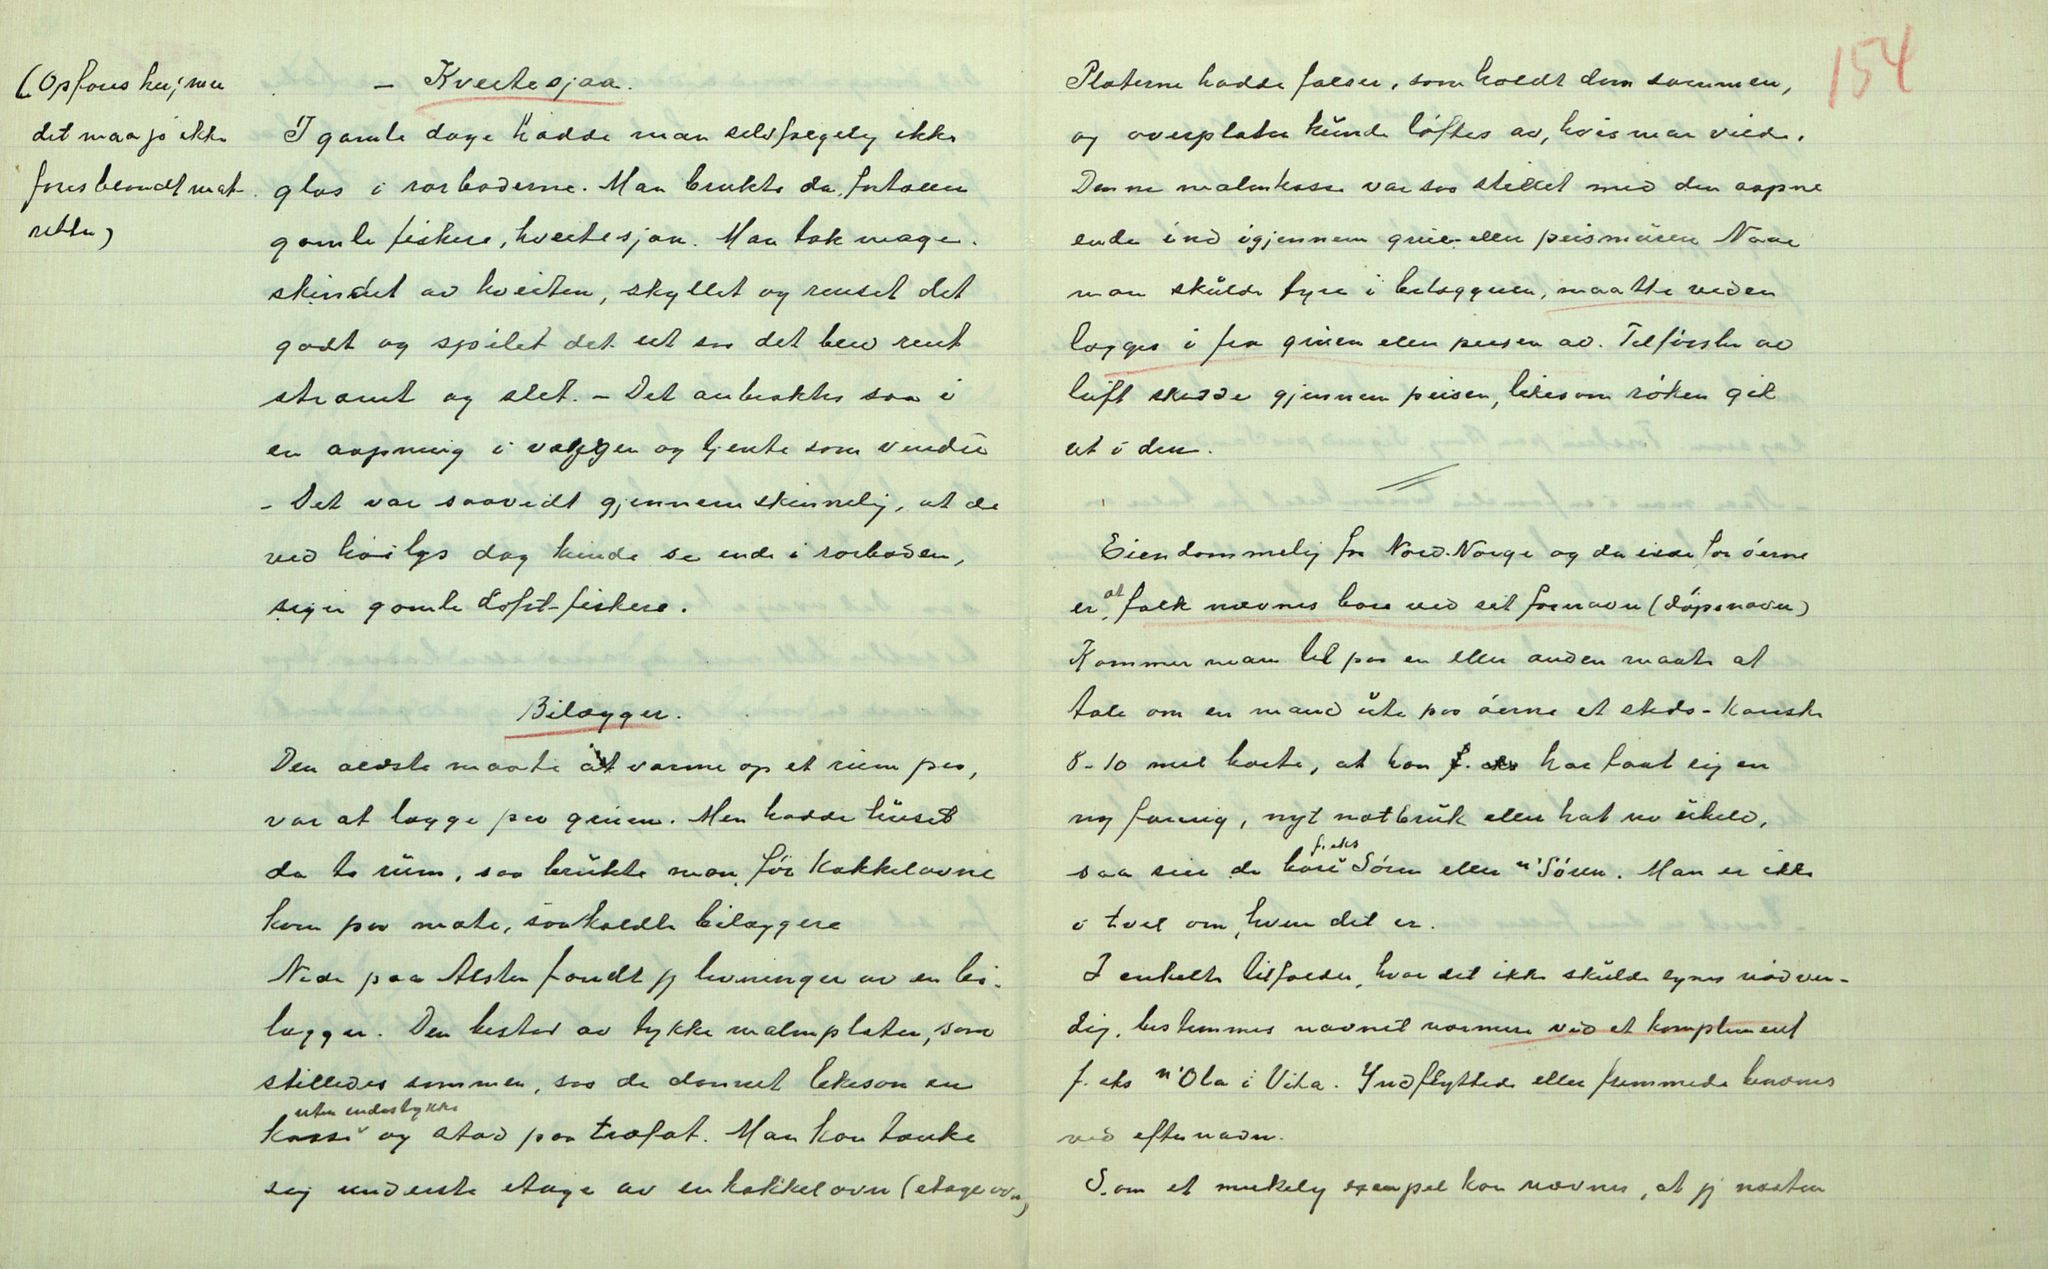 (Opføres her; men
det maa jo ikke
føres blandt mat-
retter)
- Kveitesjaa.
I gamle dage hadde man selvfølgelig ikke
glas i rorboderne. Man brukte da, fortæller
gamle fiskere, kveitesjaa. Man tok mage-
skindet av kveiten, skyllet og renset det
godt og spilet det ut saa det blev rent
stramt og slet. - Det anbraktes saa i
en aapning i væggen og tjente som vindu
- Det var saavidt gjennemskinnelig, at de
ved høilys dag kunde se ende i rorboden,
siger gamle Lofot-fiskere.
Bilægger.
Den ældste maate at varme op et rum paa,
var at lægge paa gruen. Men hadde huset
da to rum, saa brukte man, før kakkelovne
kom paa mote, saakaldte bilæggere
Nede paa Alsten fandt jeg levninger av en bi-
lægger. Den bestod av tykke malmplater, som
stilledes sammen, saa de dannet likesom en
uten endestykke
kasse og stod paa træfot. Man kan tænke
sig underste etage av en kakkelovn (etageovn)
154
Platerne hadde falser, som holdt dem sammen,
og overplaten kunde løftes av, hvis man vilde.
Denne malmkasse var saa stillet med den aapne
ende ind igjennem grue- eller peismuren. Naar
man skulde fyre i bilæggeren, maatte veden
lægges i fra gruen eller peisen av. Tilførsten av
luft skedde gjennem peisen, likesom røken gik
ut i den.
Eiendommelig for Nord-Norge og da især for øerne
er, at folk nævnes bare ved sit fornavn (døpenavn)
Kommer man til paa en eller anden maate at
tale om en mand ute paa øerne et steds - kanske
8-10 mil borte, at han har faat sig en
ny færing, nyt notbruk eller hat no uheld,
saa sier de bare f. eks Søren eller "n' Søren. Man er ikke
i tvil om, hvem det er.
I enkelte tilfælder, hvor det ikke skulde synes nødven-
dig, bestemmes navnet nærmere ved et komplement
f. eks "n' Ola i Vika. Indflyttede eller fremmede benævnes
ved efternavn.
Som et merkelig exempel kan nævnes, at jeg næsten